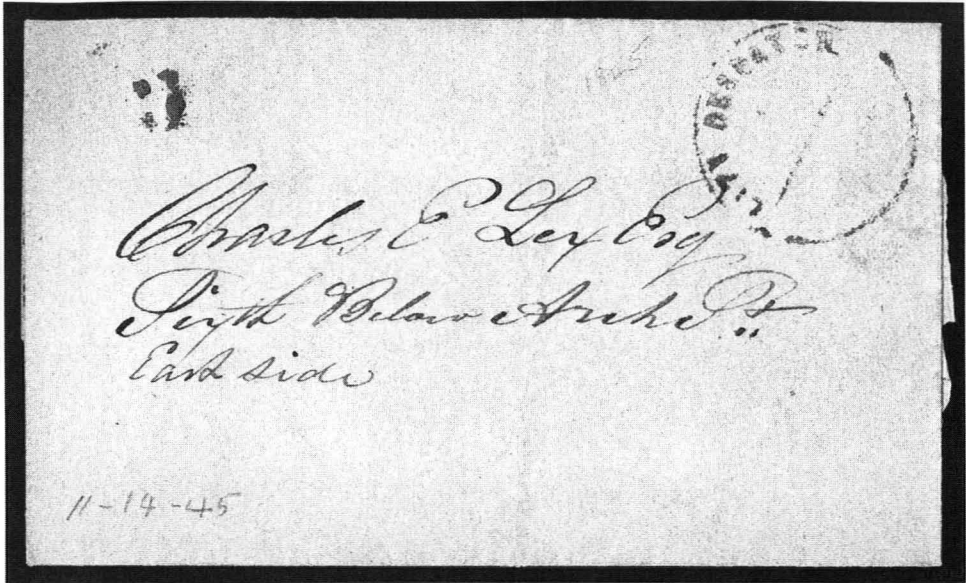 DESPATCH
Charles E Lex Esq
Sixth Below Arch St.
East side
11-14-45